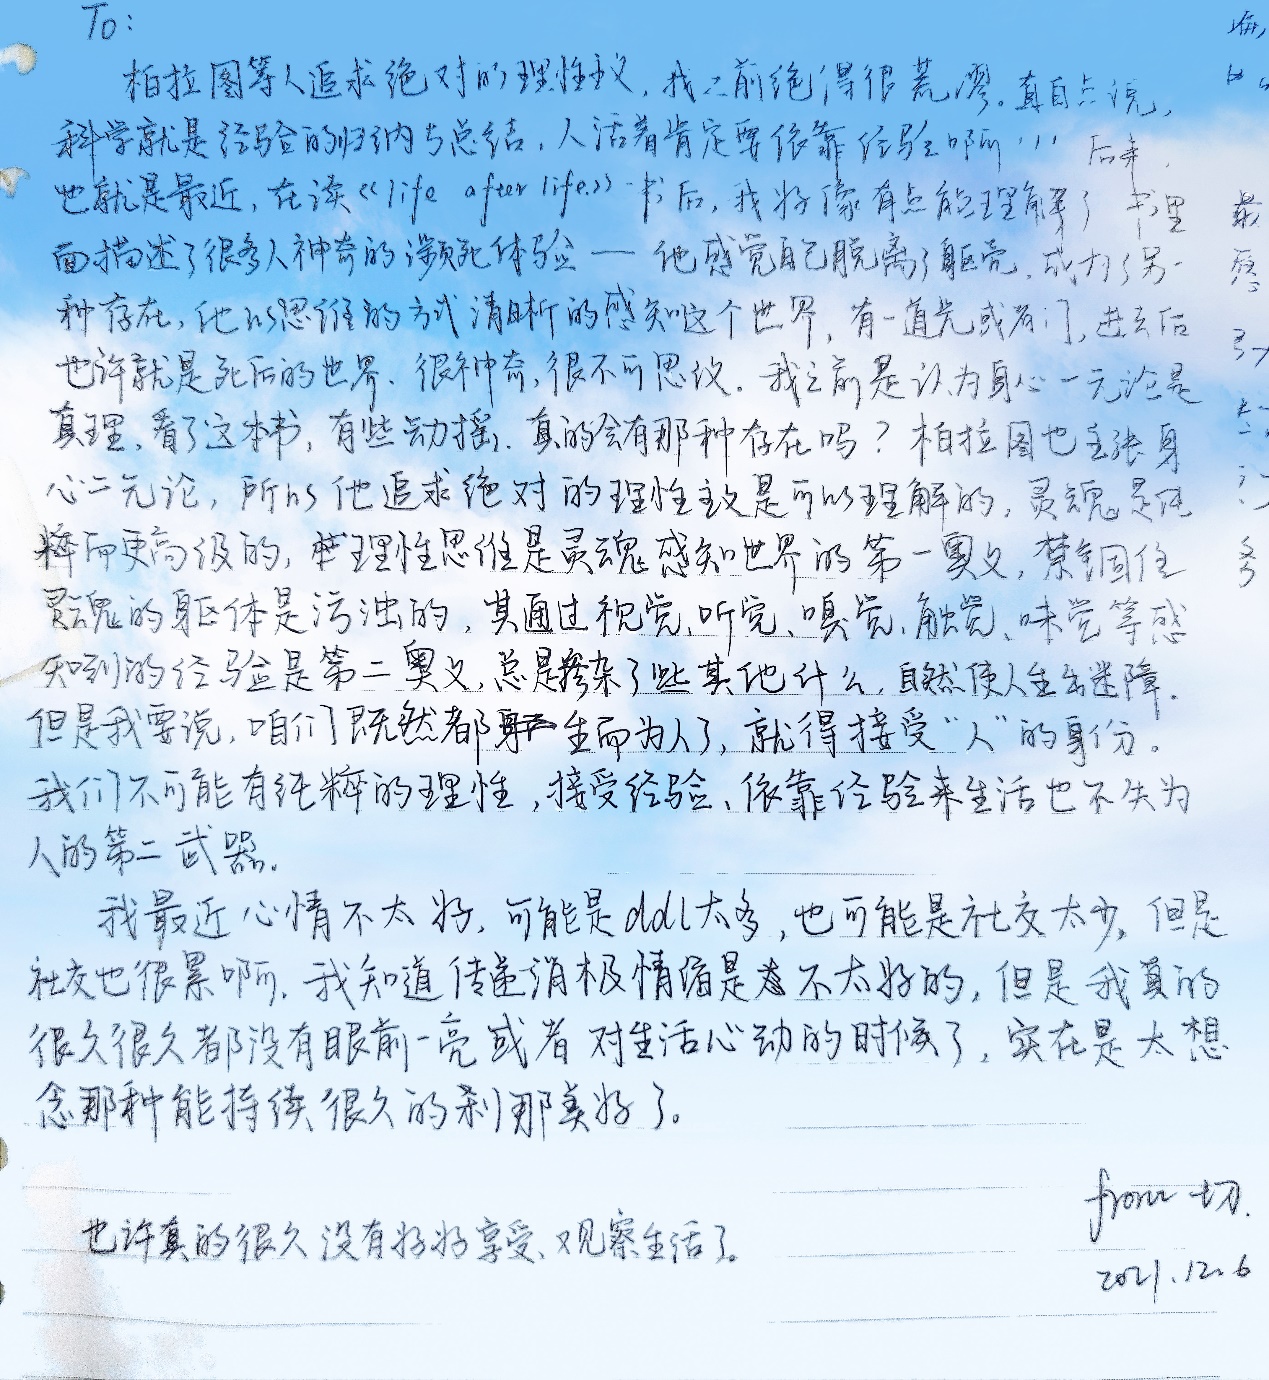 To:
柏拉图等人追求绝对的理性主义，我之前绝得很荒谬。真自点说，
科学就是经验的归纳与总结，人活着肯定要依靠经验啊！！！后来，
也就是最近，在读《life after life》一书后，我好像有点能理解了 书里
面描述了很多人神奇的濒死体验——他感觉自己脱离了躯壳，成为了另一
种存在，他以思维的方式清晰的感知这个世界，有一道光或者门，进去后
也许就是死后的世界、很神奇，很不可思议。我之前是认为身心一元论是
真理，看了这本书，有些动摇，真的会有那种存在吗？柏拉图也主张身
心二元论，所以他追求绝对的理性主义是可以理解的，灵魂是纯
粹而更高级的，理性思维是灵魂感知世界的第一奥义，禁锢住
灵魂的躯体是污浊的，其通过视觉、听觉、嗅觉、触觉、味觉等感
知到的经验是第二奥义，总是掺杂了些其他什么，自然使人生出迷障。
但是我要说，咱们既然都生而为人了，就得接受“人”的身份。
我们不可能有纯粹的理性，接受经验、依靠经验来生活也不失为
人的第二武器。
我最近心情不太好，可能是ddl太多，也可能是社交太少，但是
社交也很累啊，我知道传递消极情绪是不太好的，但是我真的
很久很久都没有眼前一亮或者对生活心动的时候了，实在是太想
念那种能持续很久的刹那美好了。
from 一切.
也许真的很久没有好好享受、观察生活了。
2021.12.6